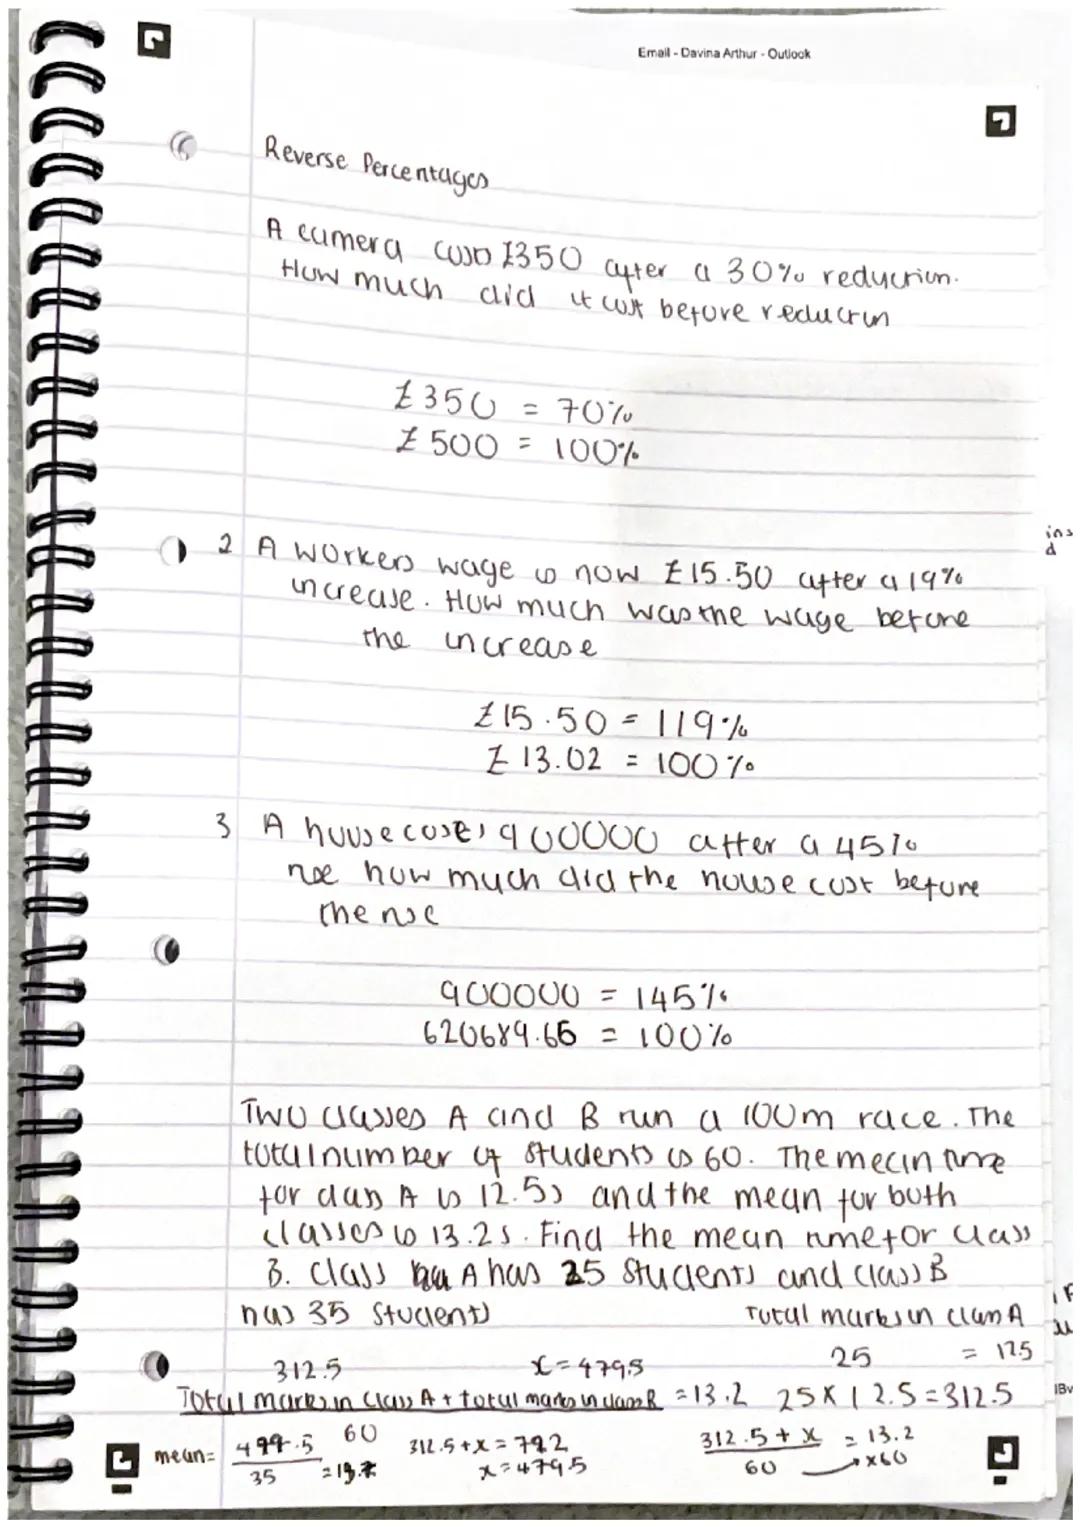 Email - Davina Arthur - Outlook
Reverse Percentages
A camera costs £350 after a 30% reduction.
How much did it cost before reduction
£350 = 70%
£500 = 100%
2 A workers wage is now £15.50 after a 19%
increase. How much was the wage before
the increase
£15.50 = 119%
£13.02 = 100%
3 A house costs 900000 after a 45%
rise how much did the house cost before
the rise
900000 = 145%
620689.66 = 100%
Two classes A and B run a 100m race. The
total number of students is 60. The mean time
for class A is 12.5s and the mean for both
classes is 13.2s. Find the mean time for class
B. Class A has 25 students and class B
has 35 students
Total marks in class A
312.5 x = 479.5 25 = 12.5
Total marks in class A + total marks in class B = 13.2 25 x 12.5 = 312.5
60
mean = 479.5 / 35 = 13.7
312.5 + x = 792
x = 479.5
312.5 + x / 60 = 13.2
x60